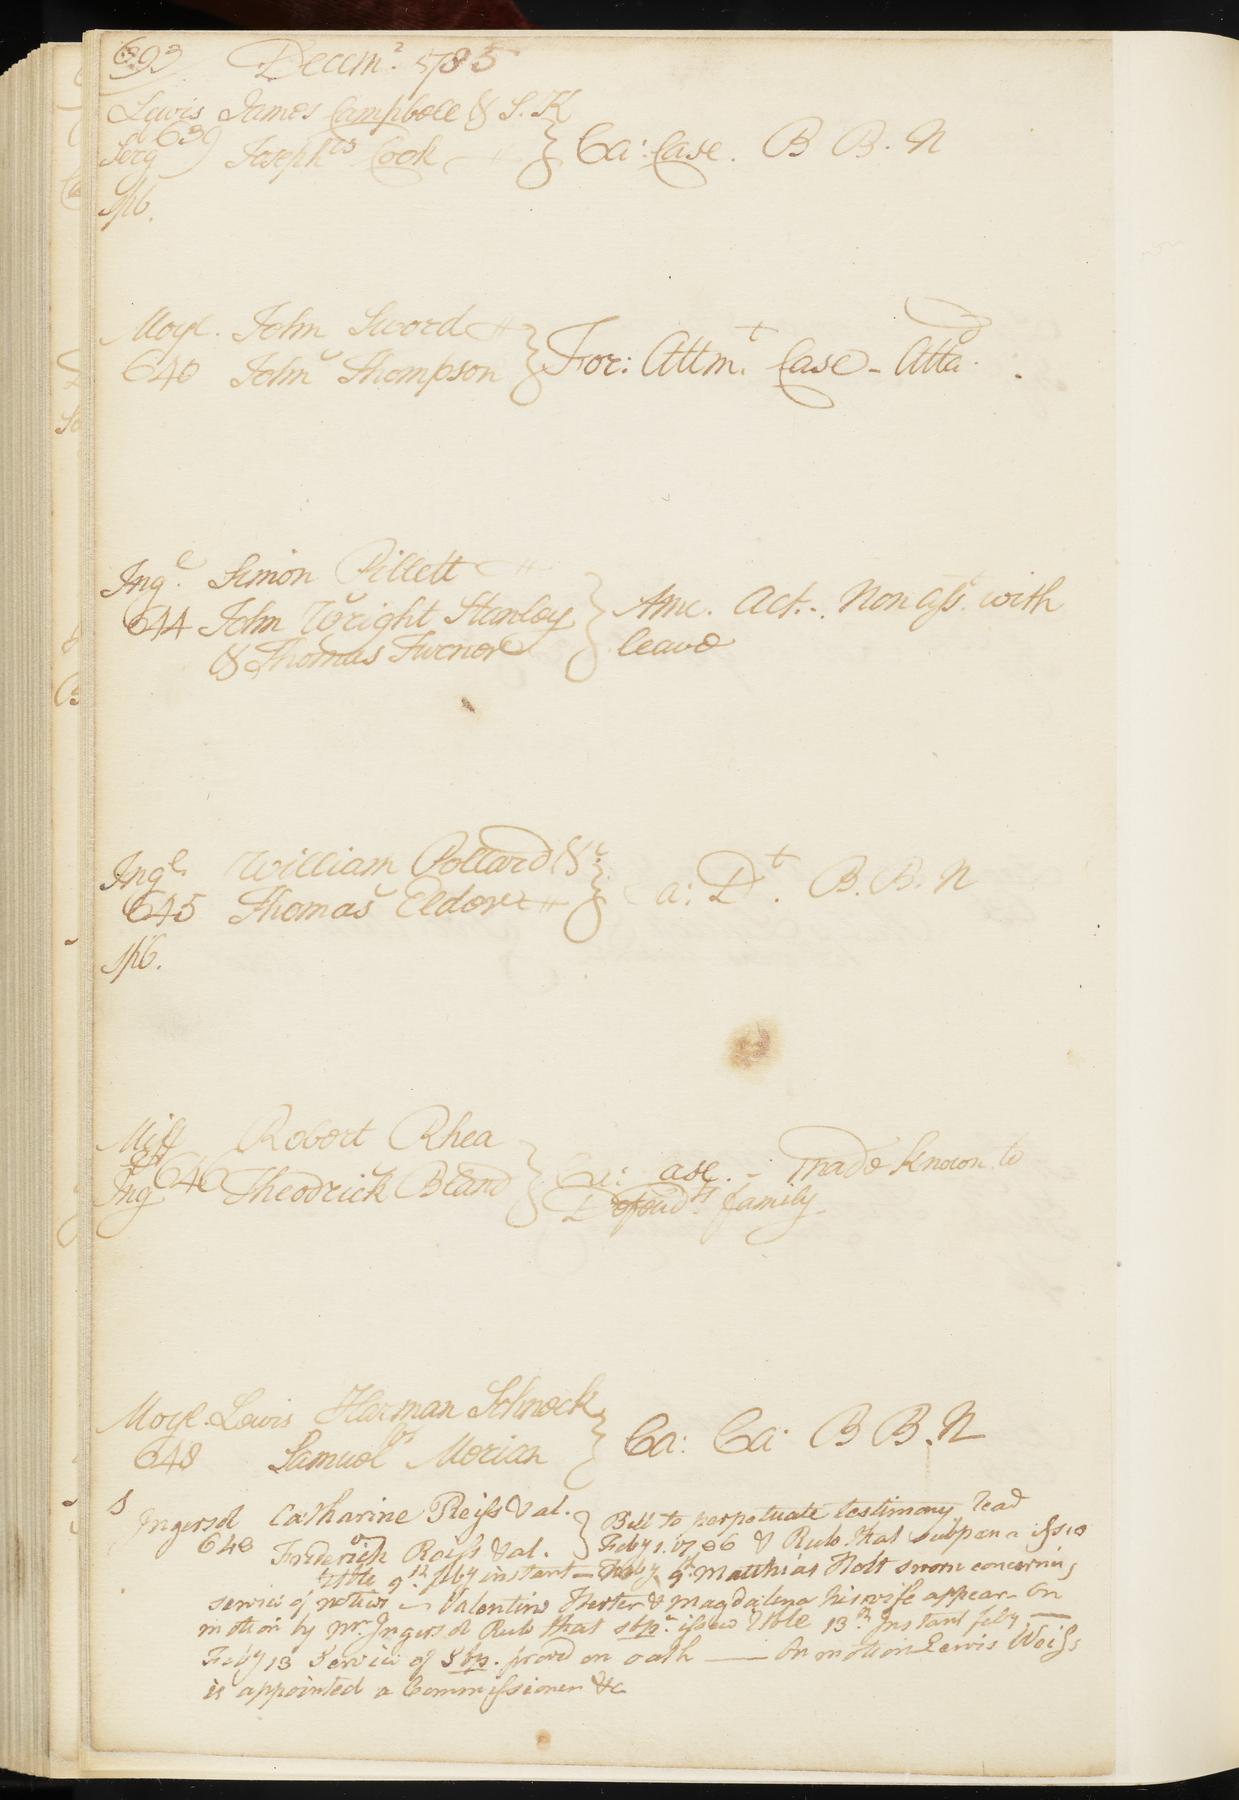 693 Decem.r 1785
Lewis James Campbell & S. K
& 639
Serg Joseph vs Cook } Ca: Case. B B. N
Spb.
Moyl. John Sword
640 John Thompson } For: Attm.t Case - Atta.
Ing.l Simon Pillett
644 John Wright Stanley } Amc. Act. Non Ass.t with
& Thomas Turner leave
Ing.l William Pollard &c
645 Thomas Elder } Ca: D.t B. B. N
Spb.
Miff Robert Rhea
& 646
Ing Theodrick Bland } Ca: Case. - Made known to
Defend.ts family.
Moyl. Lewis Harman Schneck
vs
648 Samuel Morian } Ca: Ca: B B. N
S Ingersol Catharine Reiss & al. } Bill to perpetuate testimony read
v
648 Frederick Reiss & al. Feby 1. 1786 & Rule that subpena issue
tble 9.th feby instant — Feby 9.th Matthias Holt sworn concerning
service of notice — Valentine Herter & Magdalena his wife appear - On
motion by Mr. Ingersol Rule that sbp.a issue tble 13.th Instant feby —
Feby 13 Service of Sbp. prov'd on oath — On motion Lewis Weiss
is appointed a Commissioner &c